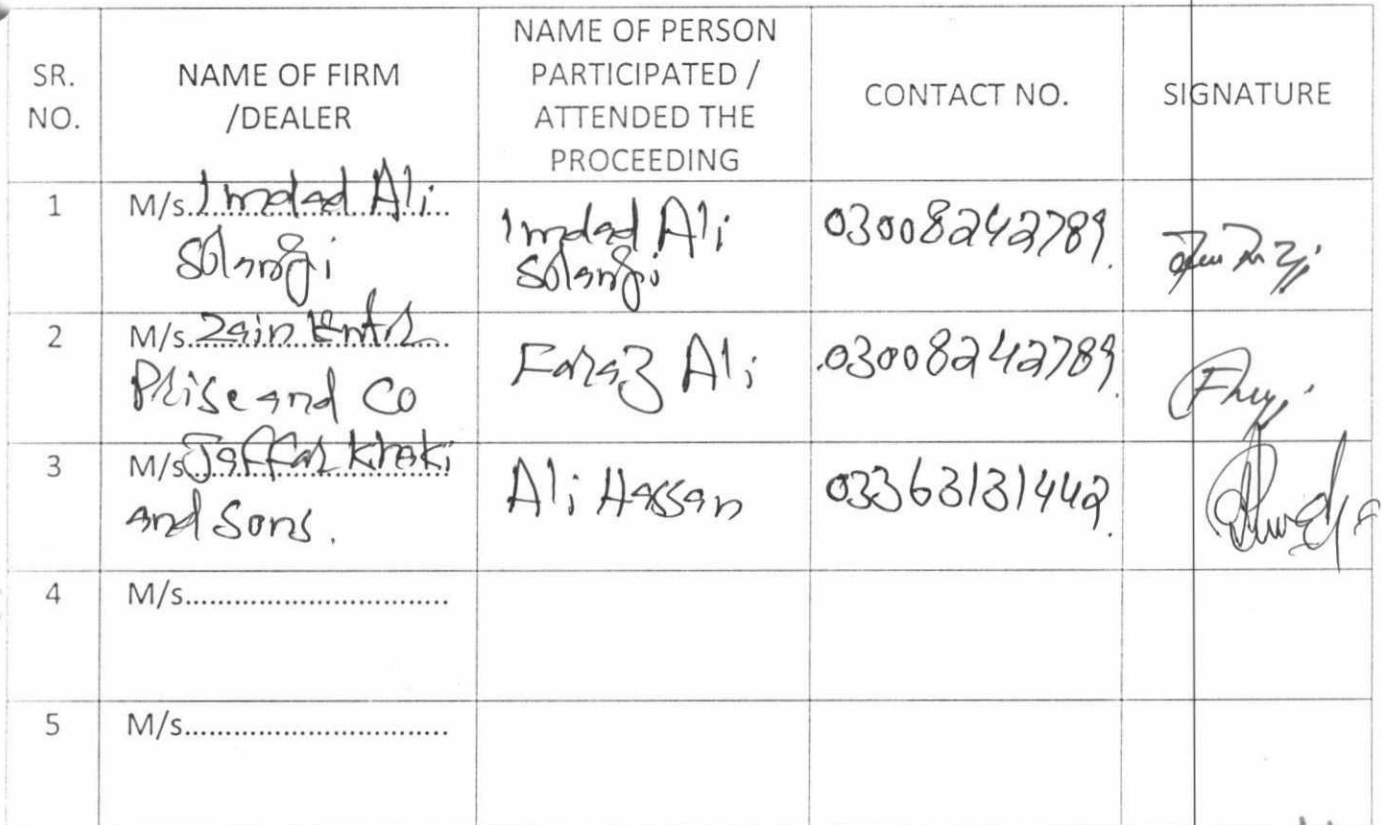 SR.
NO.
NAME OF FIRM
/DEALER
NAME OF PERSON
PARTICIPATED /
ATTENDED THE
PROCEEDING
CONTACT NO.
SIGNATURE
1
M/s. Imdad Ali
Solangi
Imdad Ali
Solangi
03008242789.
2
M/s. Zain Enter
Prise and Co
Faraz Ali
.03008242789.
3
M/s. Jaffar Khaki
and Sons.
Ali Hassan
03363131442.
4
M/s..............................
5
M/s..............................